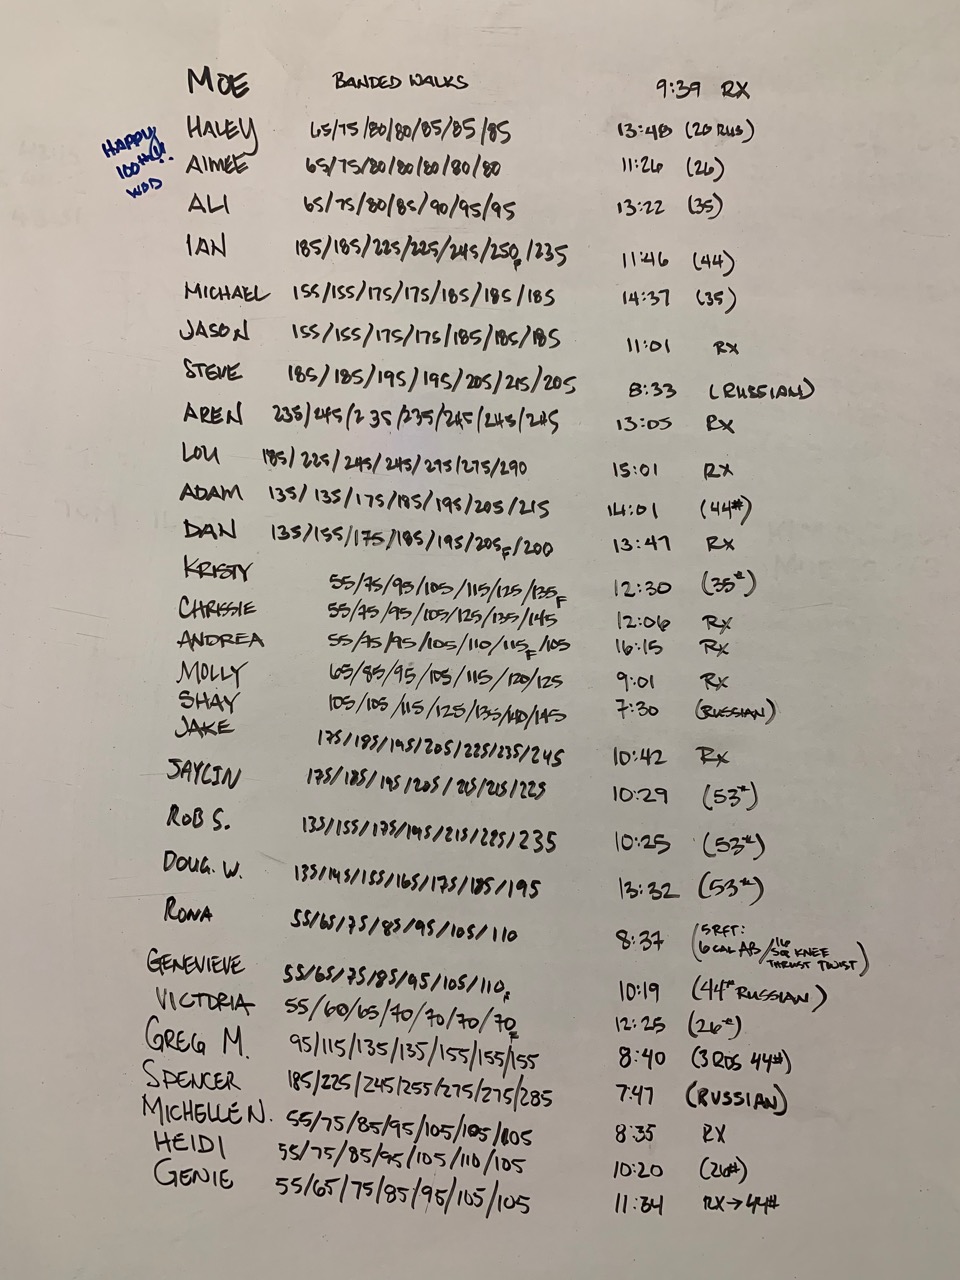 MOE BANDED WALKS 9:39 RX
HALEY 65/75/80/80/85/85/85 13:48 (26 RUS)
HAPPY
100TH!!
WOD
AIMEE 65/75/80/80/80/80/80 11:26 (26)
ALI 65/75/80/85/90/95/95 13:22 (35)
IAN 185/185/225/225/245/250F/235 11:46 (44)
MICHAEL 155/155/175/175/185/185/185 14:37 (35)
JASON 155/155/175/175/185/185/185 11:01 RX
STEVE 185/185/195/195/205/215/205 8:33 (RUSSIAN)
AREN 235/245/235/235/245/245/245 13:05 RX
LOU 185/225/245/245/275/275/290 15:01 RX
ADAM 135/135/175/185/195/205/215 14:01 (44#)
DAN 135/155/175/185/195/205F/200 13:47 RX
KRISTY 55/75/95/105/115/125/135F 12:30 (35#)
CHRISSIE 55/75/95/105/125/135/145 12:06 RX
ANDREA 55/75/95/105/110/115F/105 16:15 RX
MOLLY 65/85/95/105/115/120/125 9:01 RX
SHAY 105/105/115/125/135/140/145 7:30 (RUSSIAN)
JAKE 175/185/195/205/225/235/245 10:42 RX
JAYLIN 175/185/195/205/215/215/225 10:29 (53#)
ROB S. 135/155/175/195/215/225/235 10:25 (53#)
DOUG. W. 135/145/155/165/175/185/195 13:32 (53#)
RONA 55/65/75/85/95/105/110 8:37 (5RFT:
6 CAL AB/16 SQ KNEE
THRUST TWIST)
GENEVIEVE 55/65/75/85/95/105/110F 10:19 (44# RUSSIAN)
VICTORIA 55/60/65/70/70/70/70F 12:25 (26#)
GREG M. 95/115/135/135/155/155/155 8:40 (3 RDS 44#)
SPENCER 185/225/245/255/275/275/285 7:47 (RUSSIAN)
MICHELLE N. 55/75/85/95/105/105/105 8:35 RX
HEIDI 55/75/85/95/105/110/105 10:20 (26#)
GENIE 55/65/75/85/95/105/105 11:34 RX→44#